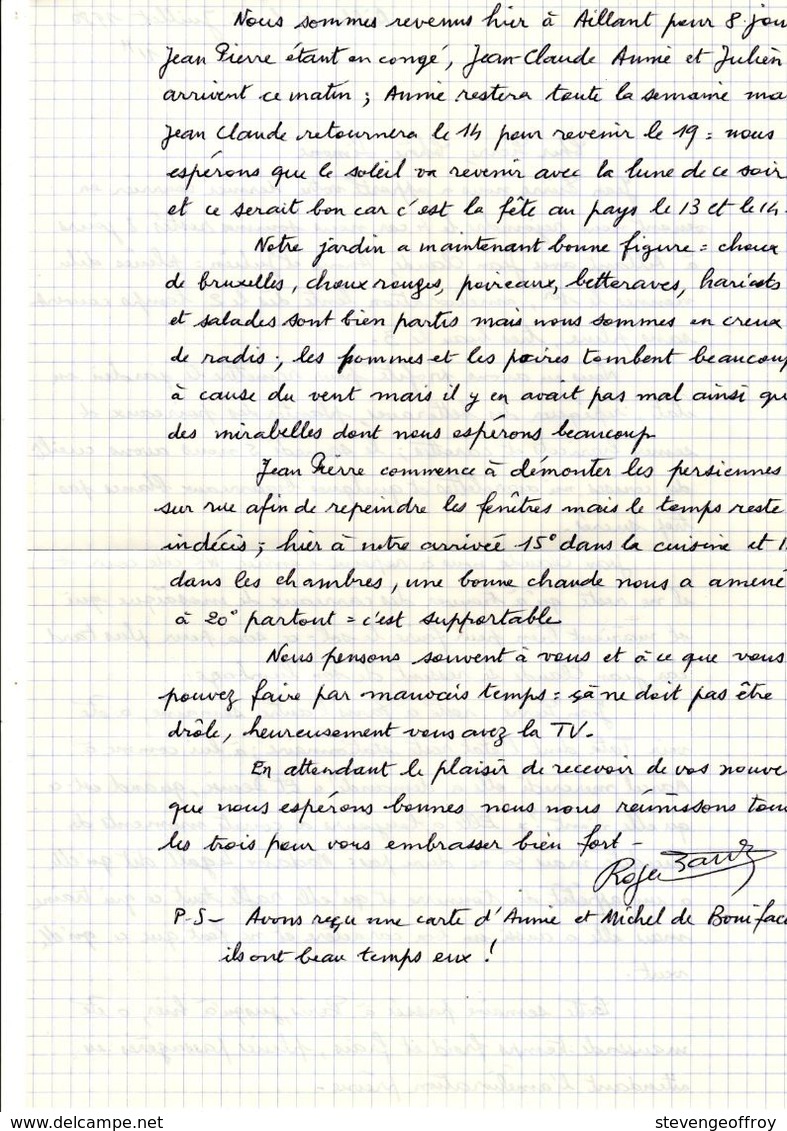 Nous sommes revenus hier à Aillant pour 8 jou
Jean Pierre étant en congé, Jean-Claude Annie et Julien
arrivent ce matin ; Annie restera toute la semaine ma
Jean Claude retournera le 14 pour revenir le 19 = nous
espérons que le soleil va revenir avec la lune de ce soir
et ce serait bon car c'est la fête au pays le 13 et le 14.
Notre jardin a maintenant bonne figure = choux
de bruxelles, choux rouges, poireaux, betteraves, haricots
et salades sont bien partis mais nous sommes en creux
de radis ; les pommes et les poires tombent beaucoup
à cause du vent mais il y en avait pas mal ainsi que
des mirabelles dont nous espérons beaucoup
Jean Pierre commence à démonter les persiennes
sur rue afin de repeindre les fenêtres mais le temps reste
indécis ; hier à notre arrivée 15° dans la cuisine et 1
dans les chambres, une bonne chaude nous a amené
à 20° partout = c'est supportable
Nous pensons souvent à vous et à ce que vous
pouvez faire par mauvais temps = çà ne doit pas être
drôle, heureusement vous avez la TV.
En attendant le plaisir de recevoir de vos nouve
que nous espérons bonnes nous nous réunissons tous
les trois pour vous embrasser bien fort -
Roger
P-S- Avons reçu une carte d'Annie et Michel de Boniface
ils ont beau temps eux !
www.delcampe.net
stevengeoffroy